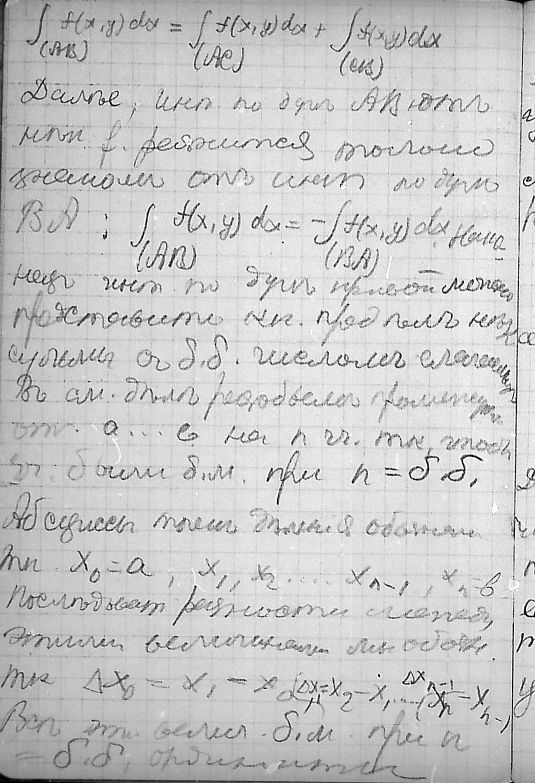 ∫(AB) f(x,y)dx = ∫(AC) f(x,y)dx + ∫(CB) f(x,y)dx
Далѣе, инт по дугѣ AB отъ
f. разнится только
знакомъ отъ инт по дугѣ
BA; ∫(AB) f(x,y) dx = -∫(BA) f(x,y) dx. Нако
нецъ инт. по дугѣ кривой можно
представить как. предѣлъ
суммы съ б.б. числомъ слагаемыхъ
Въ сам. дѣлѣ разобьемъ промежут.
от. a ... b на n ч. так, чтобы
были б.м. при n = б.б.
Абсциссы точекъ дѣленія обозначим
так x₀=a, x₁, x₂ .... xₙ₋₁, xₙ=b
Послѣдоват разности между
этими величинами мы обозн.
так Δx₀ = x₁ - x₀, Δx₁=x₂-x₁, ... Δxₙ₋₁ (xₙ - xₙ₋₁)
Всѣ эт. велич. б.м. при n
= б.б. ординаты